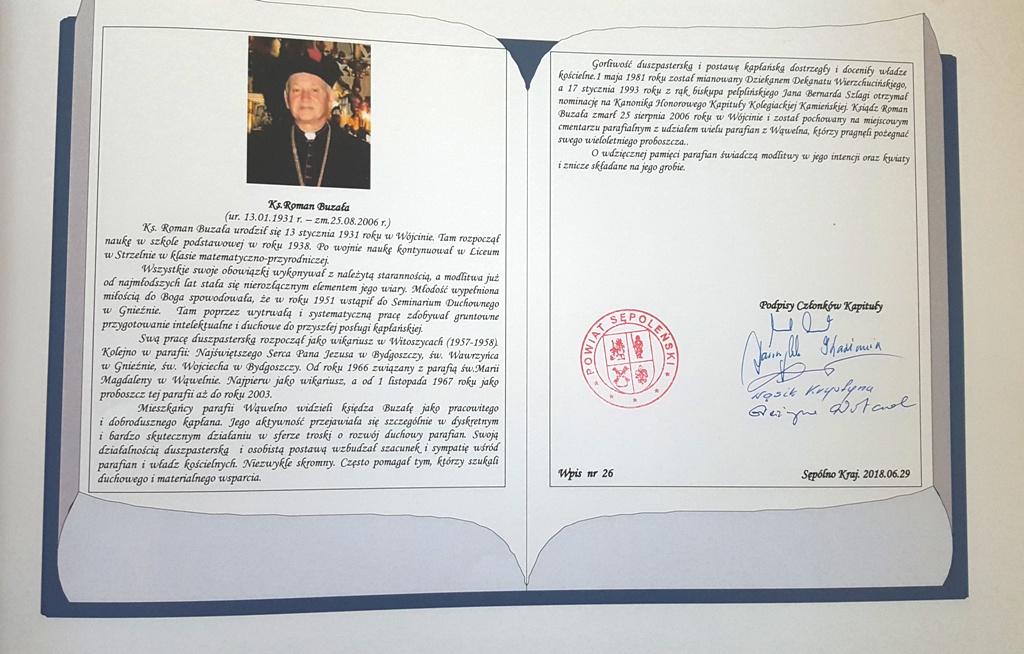 Ks.Roman Buzała
(ur. 13.01.1931 r. – zm.25.08.2006 r.)
Ks. Roman Buzała urodził się 13 stycznia 1931 roku w Wójcinie. Tam rozpoczął
naukę w szkole podstawowej w roku 1938. Po wojnie naukę kontynuował w Liceum
w Strzelnie w klasie matematyczno-przyrodniczej.
Wszystkie swoje obowiązki wykonywał z należytą starannością, a modlitwa już
od najmłodszych lat stała się nierozłącznym elementem jego wiary. Młodość wypełniona
miłością do Boga spowodowała, że w roku 1951 wstąpił do Seminarium Duchownego
w Gnieźnie. Tam poprzez wytrwałą i systematyczną pracę zdobywał gruntowne
przygotowanie intelektualne i duchowe do przyszłej posługi kapłańskiej.
Swą pracę duszpasterską rozpoczął jako wikariusz w Witoszycach (1957-1958).
Kolejno w parafii: Najświętszego Serca Pana Jezusa w Bydgoszczy, św. Wawrzyńca
w Gnieźnie, św. Wojciecha w Bydgoszczy. Od roku 1966 związany z parafią św.Marii
Magdaleny w Wąwelnie. Najpierw jako wikariusz, a od 1 listopada 1967 roku jako
proboszcz tej parafii aż do roku 2003.
Mieszkańcy parafii Wąwelno widzieli księdza Buzałę jako pracowitego
i dobrodusznego kapłana. Jego aktywność przejawiała się szczególnie w dyskretnym
i bardzo skutecznym działaniu w sferze troski o rozwój duchowy parafian. Swoją
działalnością duszpasterską i osobistą postawą wzbudzał szacunek i sympatię wśród
parafian i władz kościelnych. Niezwykle skromny. Często pomagał tym, którzy szukali
duchowego i materialnego wsparcia.
Gorliwość duszpasterską i postawę kapłańską dostrzegły i doceniły władze
kościelne.1 maja 1981 roku został mianowany Dziekanem Dekanatu Wierzchucińskiego,
a 17 stycznia 1993 roku z rąk biskupa pelplińskiego Jana Bernarda Szlagi otrzymał
nominację na Kanonika Honorowego Kapituły Kolegiackiej Kamieńskiej. Ksiądz Roman
Buzała zmarł 25 sierpnia 2006 roku w Wójcinie i został pochowany na miejscowym
cmentarzu parafialnym z udziałem wielu parafian z Wąwelna, którzy pragnęli pożegnać
swego wieloletniego proboszcza..
O wdzięcznej pamięci parafian świadczą modlitwy w jego intencji oraz kwiaty
i znicze składane na jego grobie.
Podpisy Członków Kapituły
POWIAT SĘPOLEŃSKI
Wąsik Krystyna
Wpis nr 26
Sępólno Kraj. 2018.06.29